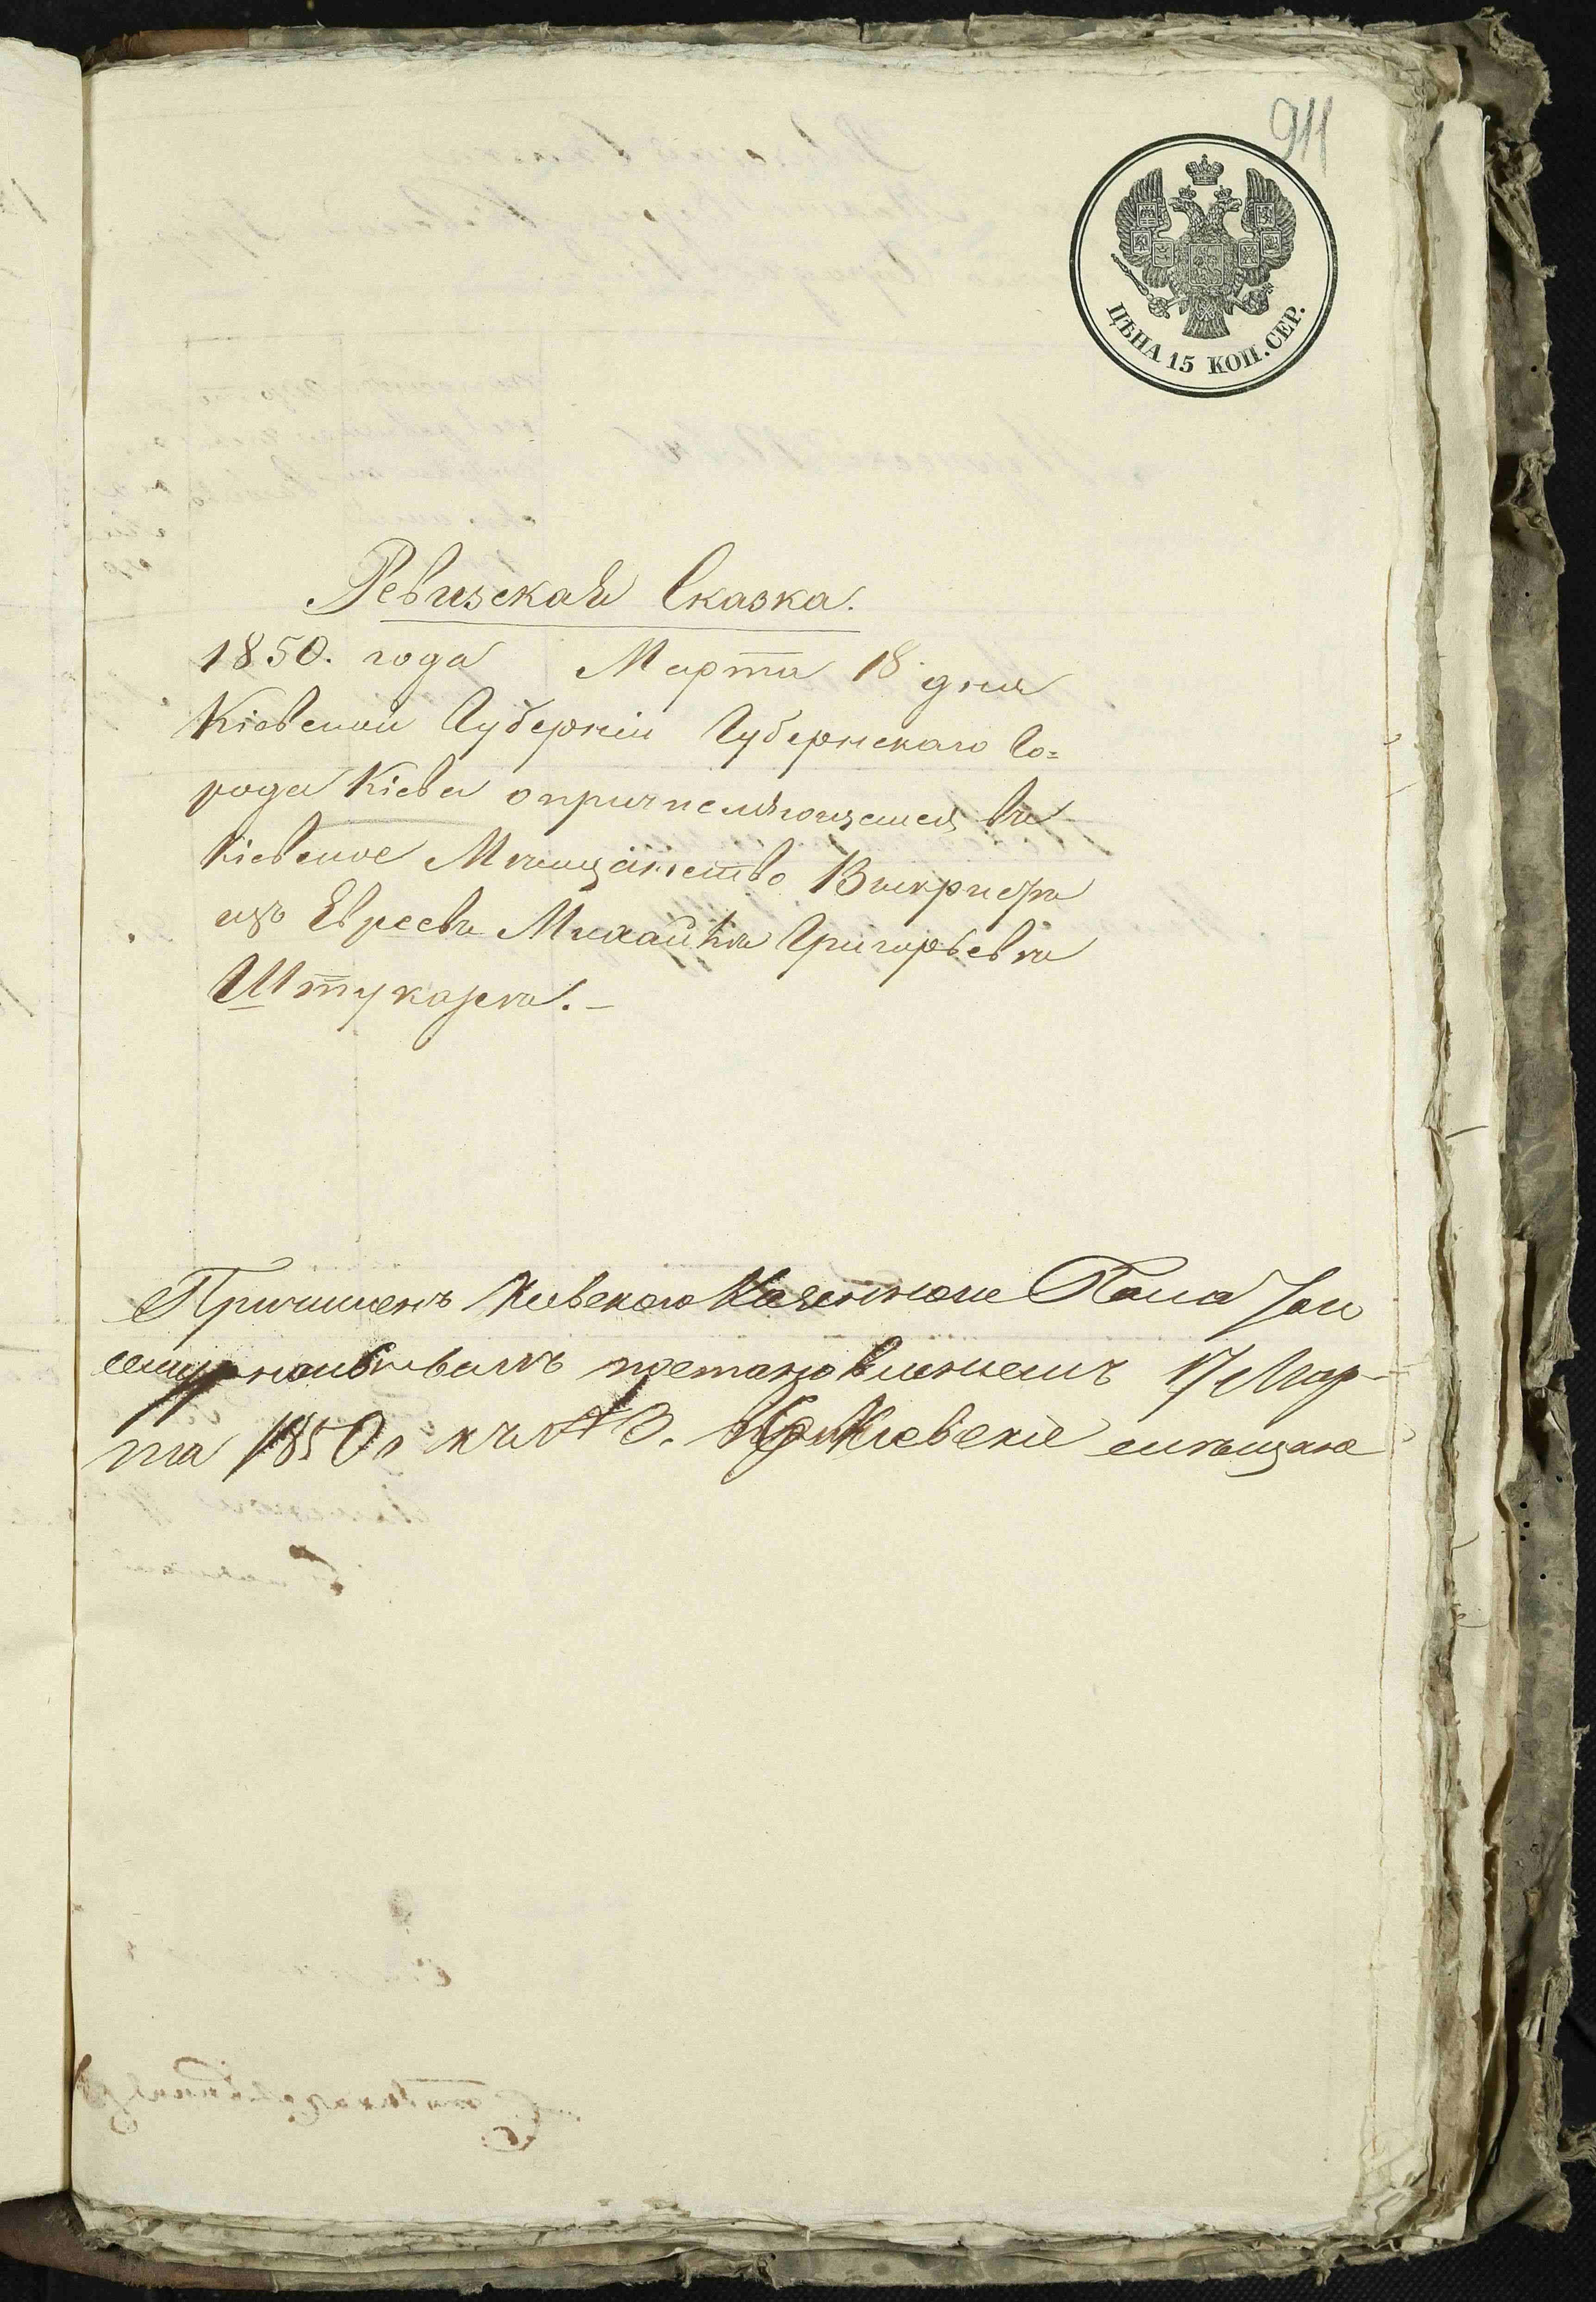 911
ЦѢНА 15 КОП. СЕР.
Ревизская Сказка.
1850. года Марта 18 дня
Кіевской Губерніи Губернскаго Го=
рода Кіева о причисляющемся въ
Кіевское Мѣщанство Выкриста
изъ Евреевъ Михайла Григорьева
Штукаря.
Причисленъ Кіевскою Казенною Палатою
постановленіемъ 17 Мар-
та 1850 въ Кіевскіе мѣщане